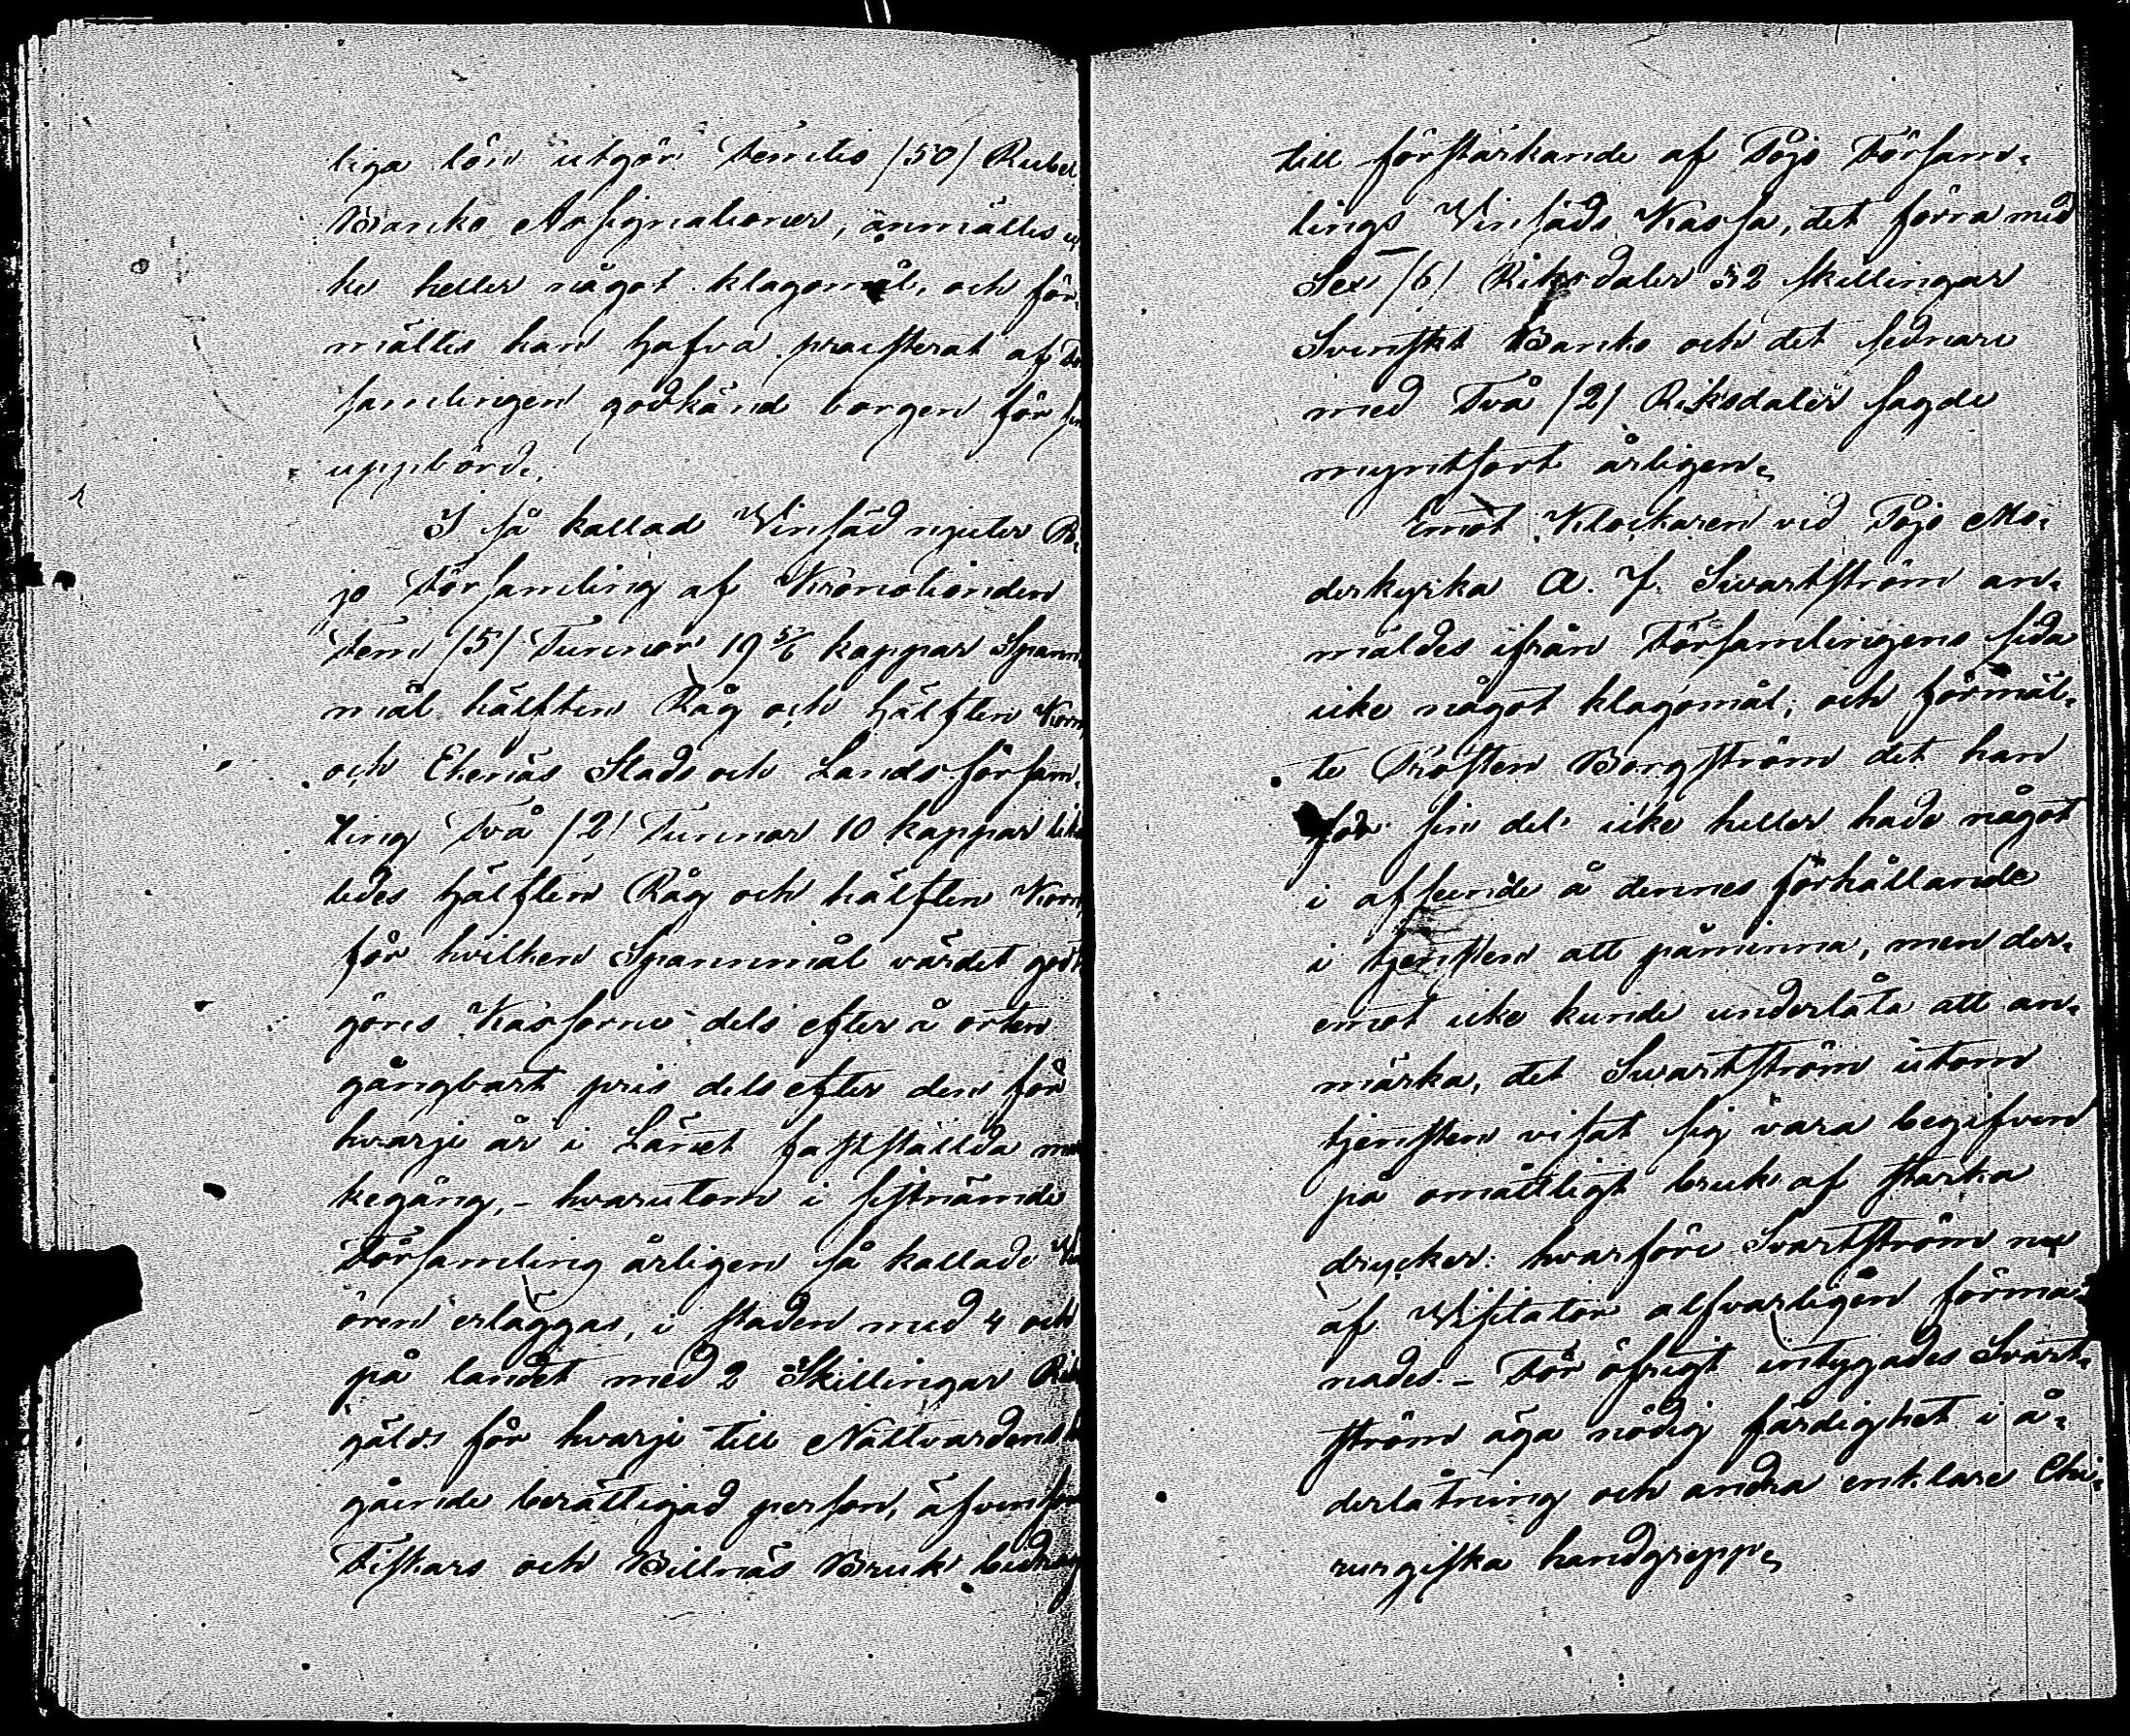 liga lön utgör Femtio /50/ Rubel
Banko Assignationer, anmältes ic
ke heller något klagomål, och för-
mältes han hafva praesterat af För
samlingen godkänd borgen för sin
uppbörd.
I så kallad Vinsäd njuter Po-
jo Församling af Kronotionden
Fem /5/ Tunnor 19 5/6 kappar Spann-
mål hälften Råg och hälften Korn,
och Ekenäs Stads och Lands försam-
ling Två /2/ Tunnor 10 kappar lika
ledes hälften Råg och hälften Korn,
för hvilken Spannmål värdet godt
göres Kassorne dels efter å orten
gångbart pris dels efter den för
hvarje år i Länet faststälda mar
kegång, - hvarutom i sistnämde
Församling årligen så kallade Vin
ören erläggas, i staden med 4 och
på landet med 2 Skillingar Riks
gälds för hvarje till Nattvardens be
gående berättigad person, äfvensom
Fiskars och Billnäs Bruk bidrag
till förstärkande af Pojo Försam-
lings Vinsäds Kassa, det förra med
Sex /6/ Riksdaler 32 skillingar
Svenskt Banko och det sednare
med Två /2/ Riksdaler sagde
myntsort årligen.
Emot Klockaren vid Pojo Mo-
derkyrka A. J. Swartström an-
mäldes ifrån Församlingens sida
icke något klagomål; och förmäl-
te Prosten Borgström det han
för sin del icke heller hade något
i afseende å dennes förhållande
i tjensten att påminna, men der-
emot icke kunde underlåta att an-
märka, det Swartström utom
tjensten visat sig vara begifven
på omåttligt bruk af starka
drycker: hvarföre Svartström nu
af Visitator alfvarligen förma-
nades. - För öfrigt intygades Svart-
ström äga nödig färdighet i å-
derlåtning och andra enklare Chi-
rurgiska handgrepp.